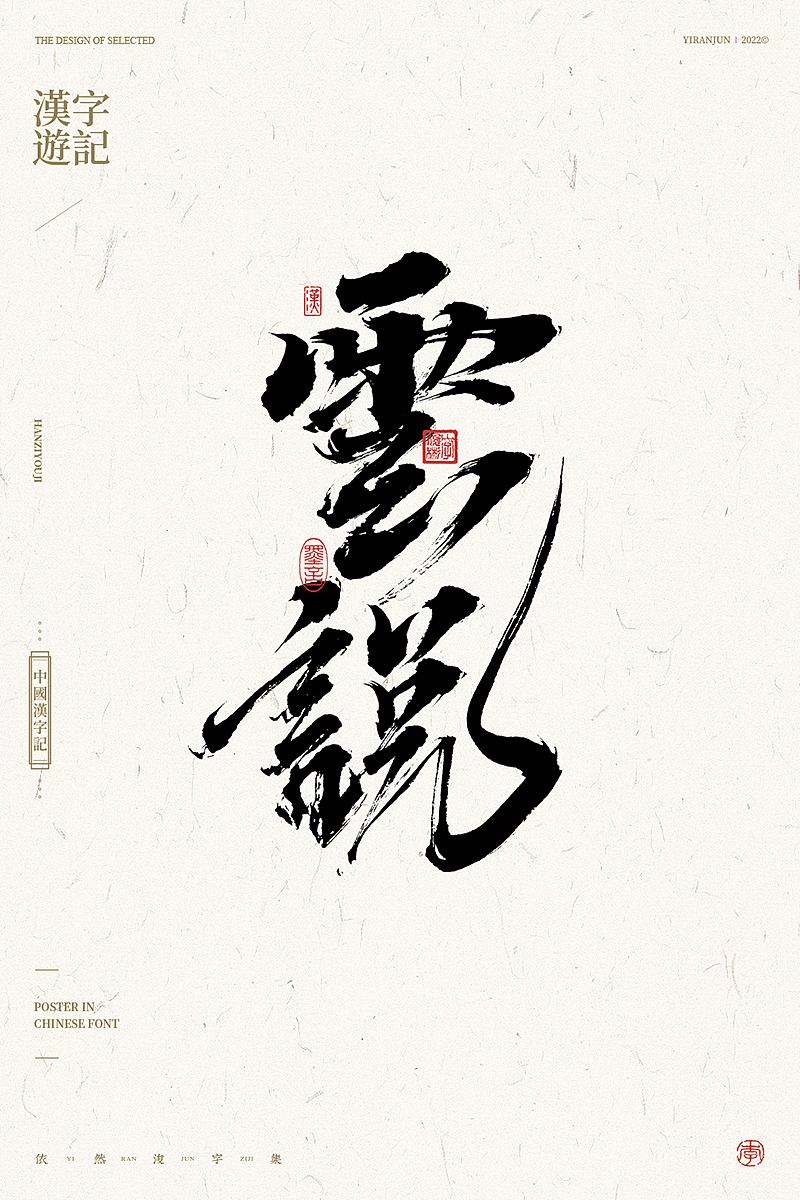 THE DESIGN OF SELECTED
YIRANJUN | 2022©
漢字
遊記
漢
雲說
HANZIYOUJI
中國漢字記
POSTER IN
CHINESE FONT
依 YI 然 RAN 浚 JUN 字 ZIJI 集